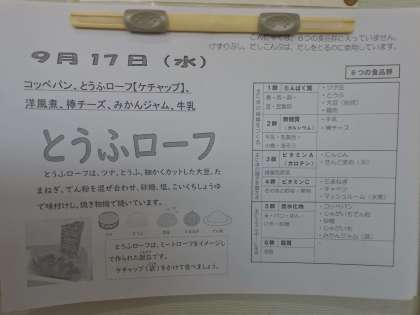 9月17日（水）
コッペパン、とうふローフ【ケチャップ】、
洋風煮、棒チーズ、みかんジャム、牛乳
とうふローフ
とうふローフは、ツナ、とうふ、細かくカットした大豆、た
まねぎ、でん粉を混ぜ合わせ、砂糖、塩、こいくちしょうゆ
で味付けし、焼き物機で焼いています。
とうふローフは、ミートローフをイメージし
て作られた献立です。
ケチャップ（袋）をかけて食べましょう。
こんだては、6つの食品群に入っていません。
けずりぶし、だしこんぶは、だしをとるのに使用しています。
6つの食品群
1群 たんぱく質
・ツナ缶
・とうふ
・大豆
2群 無機質
（カルシウム）
・牛乳
・棒チーズ
3群 ビタミンA
（カロテン）
・にんじん
4群 ビタミンC
・たまねぎ
・キャベツ
・マッシュルーム（水煮）
5群 炭水化物
・コッペパン
・じゃがいもでん粉
・砂糖
・じゃがいも
・みかんジャム（袋）
6群 脂質